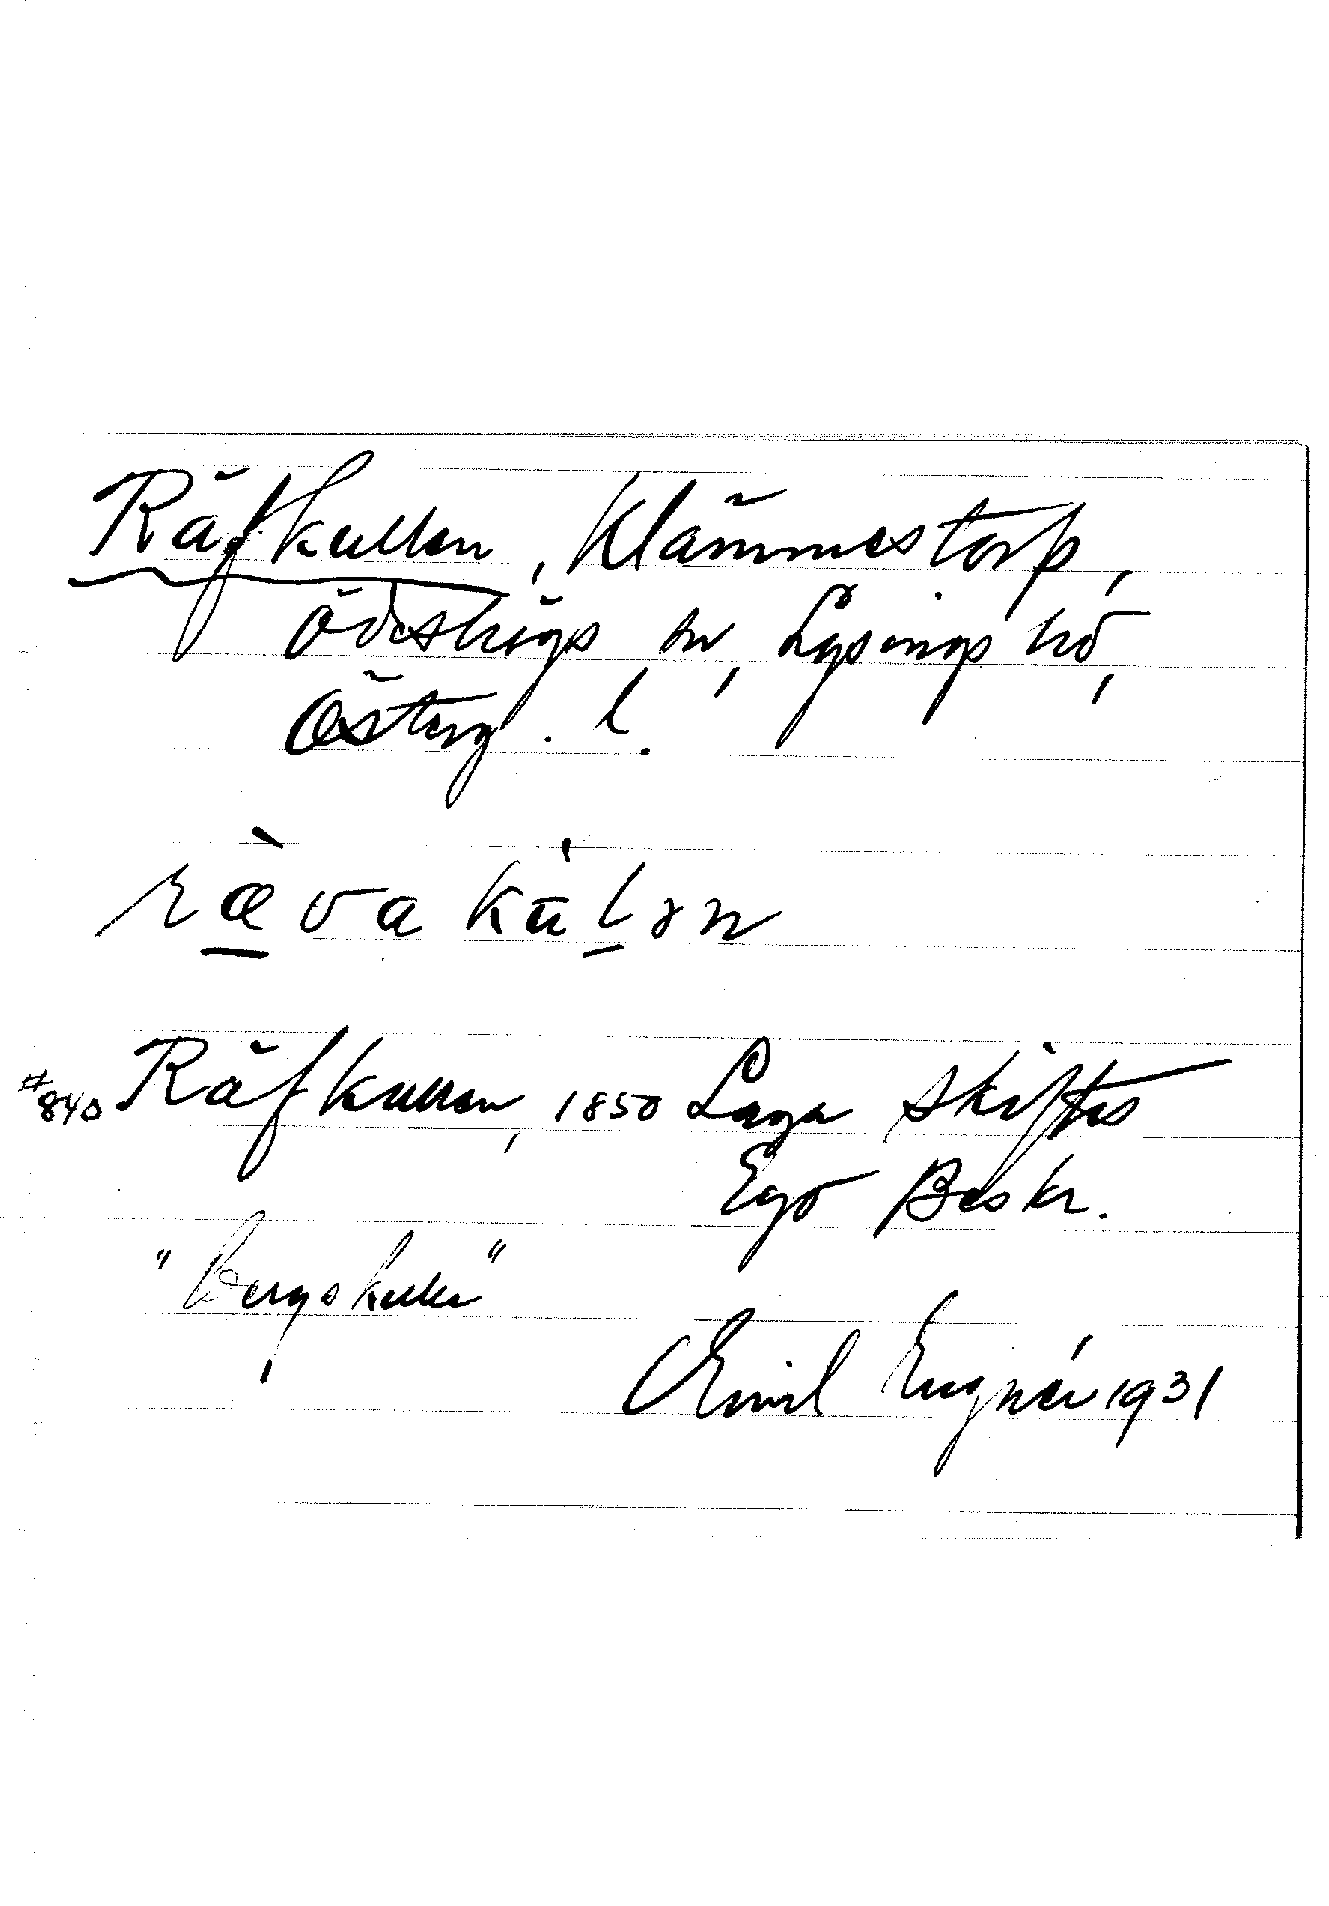 Räfkullen, Klämmestorp,
Ödeshögs sn, Lysings hd,
Österg. l.
rævakūlen
#840 Räfkullen, 1850 Laga skiftes
Ego Beskr.
"Bergskulle"
Emil 1931